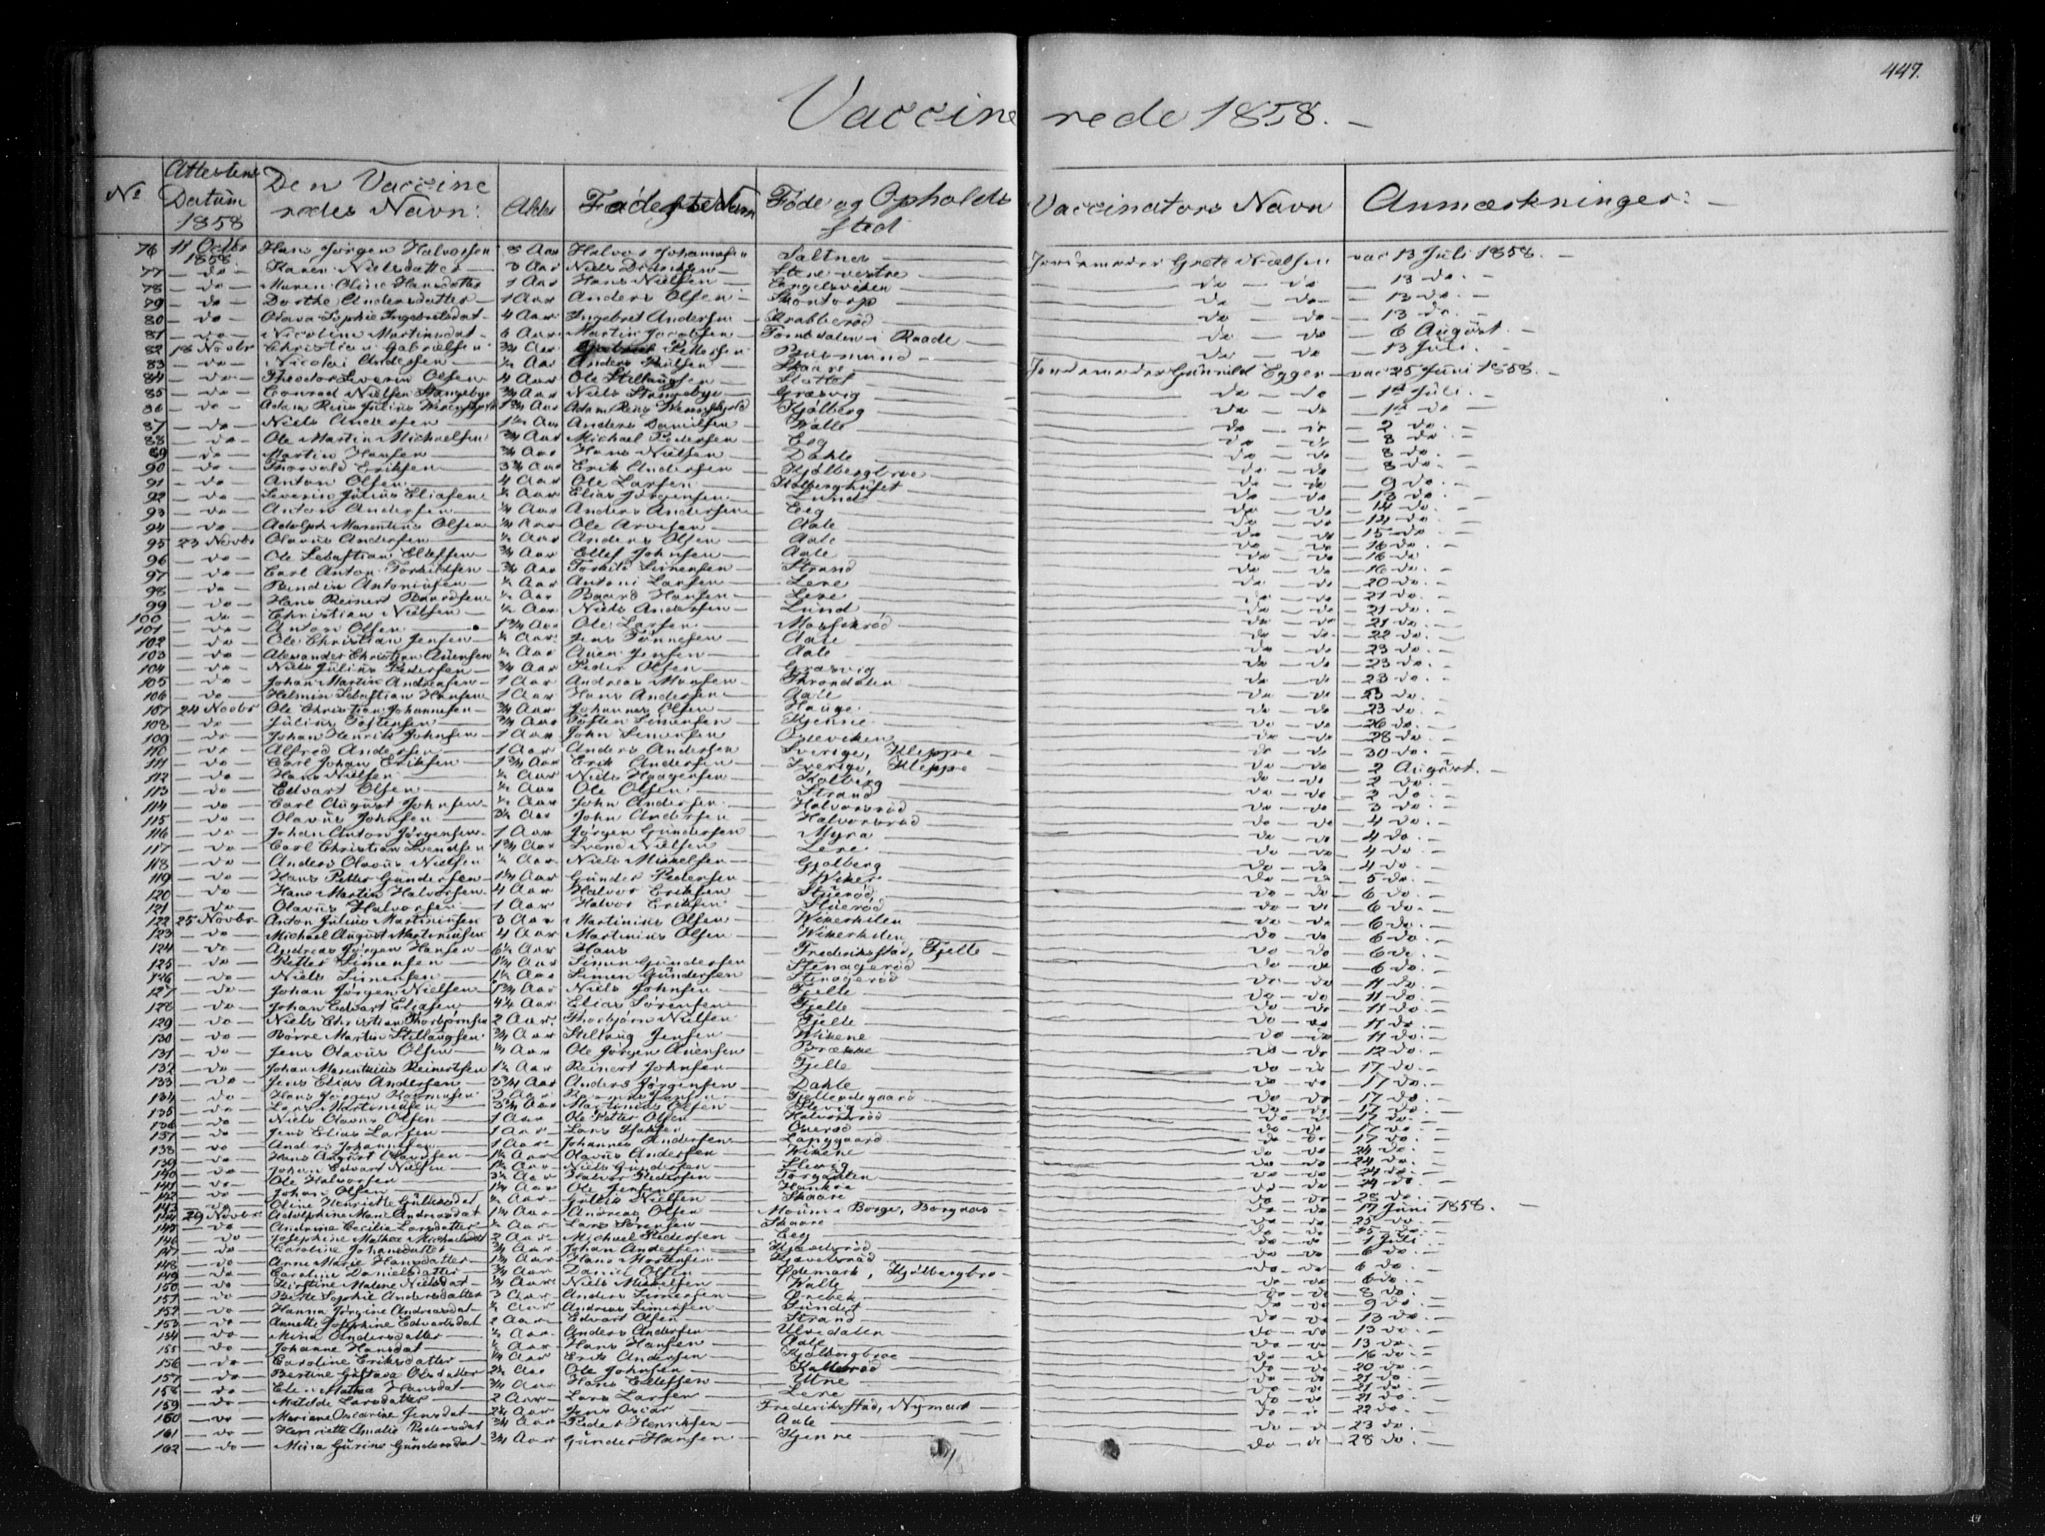 447.
Vaccinerede 1858. –
No Attestens Datum 1858 Den Vaccineredes Navn: Alder Faderens Navn Føde og Opholdssted Vaccinators Navn Anmærkninger: –
76 11 Octbr 1858 Hans Jørgen Halvorsen 8 Aar Halvor Johannesen Saltnes Jordemoder Grete Nielsen vac 13 Juli 1858. –
77 – do – Karen Nielsdatter 3 Aar Niels Diriksen Stene vestre do – do – 13 do. –
78 – do – Maren Oline Hansdatter 1 Aar Hans Nielsen Engelsviken do – do – 13 do. –
79 – do – Dorthe Andersdatter 1 Aar Anders Olsen do – do – 13 do. –
80 – do – Olava Sophie Ingebretsdat 4 Aar Ingebret Andersen Krabberød do – do – 6 August –
81 – do – Nicoline Martinsdat 6 Aar Martin Jacobsen i Raade do – do – 13 Juli. –
82 13 Novbr Christian Gabrielsen ¾ Aar Pettersen Jordemoder Gunild Egger vac 25 Juni 1858. –
83 – do – Nicolai Andersen ½ Aar Anders Skaare do – do – 1st Juli. –
84 – do – Theodor Severin Olsen 4 Aar Ole Stillaugsen Slottet do – do – 1st do –
85 – do – Conrad Nielsen Stangebye Aar Niels Stangebye Græsvig do – do – 2 do. –
86 – do – Adam Rens Julius Aar Adam Rens Kjølberg do – do – 8 do –
87 – do – Niels Andersen 1½ Aar Anders Danielsen do – do – 8 do. –
88 – do – Ole Martin Michaelsen ¾ Aar Michael Pedersen Eeg do – do – 8 do. –
89 – do – Martin Hansen ¾ Aar Hans Nielsen Dahle do – do – 9 do. –
90 – do – Thorvald Eriksen Aar Erik Andersen Kjølbergbroe do – do – 13 do. –
91 – do – Anton Olsen 4 Aar Ole Larsen do – do – 14 do. –
92 – do – Severin Julius Eliasen Aar Elias Jørgensen Lund do – do – 14 do. –
93 – do – Anton Andersen Aar Anders Andersen Eeg do – do – 15 do. –
94 – do – Adolph Marentius Olsen Aar Ole Arvesen Aale do – do – 16 do. –
95 23 Novbr Olavus Andersen Aar Anders Olsen Aale do – do – 16 do. –
96 – do – Ole Sebastian Ellefsen ¾ Aar Ellef Johnsen Aale do – do – 16 do. –
97 – do – Carl Anton Torkildsen ¾ Aar Torkild Simensen Strand do – do – 20 do. –
98 – do – Antoniusen Aar Antoni Larsen Lere do – do – 21 do. –
99 – do – Hans Reinert Baardsen ½ Aar Baard Hansen Lere do – do – 21 do. –
100 – do – Christian Nielsen ½ Aar Niels Andersen Lund do – do – 21 do. –
101 – do – Anton Olsen 1¾ Aar Ole Larsen do – do – 22 do. –
102 – do – Ole Christian Jensen Aar Jens Tønnesen Aale do – do – 23 do. –
103 – do – Alexander Christian Auensen Aar Auen Jensen Aale do – do – 23 do. –
104 – do – Niels Julius Pedersen ¾ Aar Peder Olsen Græsvig do – do – 23 do. –
105 – do – Johan Martin Andreasen 1 Aar Andreas Throndalen do – do – 23 do. –
106 – do – Helmin Sebastian Hansen 1 Aar Hans Andersen Aale do – do – 23 do. –
107 24 Novbr Ole Christian Johannesen ¾ Aar Johannes Olsen Hauge do – do – 26 do. –
108 – do – Julius Tostensen ¾ Aar Tosten Simensen Kjenne do – do – 28 do. –
109 – do – Johan Henrik Johnsen 1 Aar John Simensen do – do – 30 do. –
110 – do – Alfred Andersen 1 Aar Anders Andersen Sverige, Kleppe do – do – 2 August. –
111 – do – Carl Johan Eriksen 1¾ Aar Erik Andersen Sverige, Kleppe do – do – 2 do. –
112 – do – Hans Nielsen ½ Aar Niels Haagensen Kolberg do – do – 2 do. –
113 – do – Edvart Olsen ½ Aar Ole Olsen Strand do – do – 3 do. –
114 – do – Carl August Johnsen ½ Aar John Andersen Halvorsrød do – do – 4 do. –
115 – do – Olavus Johnsen Aar John Andersen Halvorsrød do – do – 4 do. –
116 – do – Johan Anton Jørgensen 1 Aar Jørgen Gundersen Myra do – do – 4 do. –
117 – do – Carl Christian Svendsen 1¾ Aar Svend Nielsen Lere do – do – 4 do. –
118 – do – Anders Olavus Nielsen ½ Aar Niels Mikkelsen Gjølberg do – do – 5 do. –
119 – do – Hans Petter Gundersen Aar Gunder Pedersen Wiker do – do – 6 do. –
120 – do – Hans Martin Halvorsen 4 Aar Halvor Eriksen Stuerød do – do – 6 do. –
121 – do – Olavus Halvorsen 1 Aar Halvor Eriksen Stuerød do – do – 6 do. –
122 25 Novbr Anton Julius Martiniusen 3 Aar Martinius Olsen Wikerkilen do – do – 6 do. –
123 – do – Michael August Martiniusen 4 Aar Martinius Olsen Wikerkilen do – do – 6 do. –
124 – do – Andreas Jørgen Hansen 6½ Aar Hans Frederikstad, Fjelle do – do – 6 do. –
125 – do – Petter Simensen Aar Simen Gundersen Stenagerød do – do – 11 do. –
126 – do – Niels Simensen Aar Simen Gundersen Stenagerød do – do – 11 do. –
127 – do – Johan Jørgen Nielsen 1¾ Aar Niels Johnsen Fjelle do – do – 11 do. –
128 – do – Johan Edvart Eliasen 4½ Aar Elias Sørensen Fjelle do – do – 11 do. –
129 – do – Niels Christian Thorbjørnsen 2 Aar Thorbjørn Nielsen Fjelle do – do – 11 do. –
130 – do – Børre Martin Stillaugsen ¾ Aar Stillaug Jensen Wikene do – do – 12 do. –
131 – do – Jens Olavus Olsen Aar Ole Jørgen Auensen Brække do – do – 17 do. –
132 – do – Johan Marenthius Reinertsen 1½ Aar Reinert Johnsen Fjelle do – do – 17 do. –
133 – do – Jens Elias Andersen 3¾ Aar Anders Jørgensen Dahle do – do – 17 do. –
134 – do – Hans Jørgen 3 Aar Fjelleødegaard do – do – 17 do. –
135 – do – Lars Martiniusen Aar Martinius Olsen Slevig do – do – 17 do. –
136 – do – Niels Olavus Olsen 1 Aar Ole Petter Olsen Halvorsrød do – do – 17 do. –
137 – do – Jens Elias Larsen 1 Aar Lars do – do – 17 do. –
138 – do – Anders Johannesen 1 Aar Johannes Andersen Langgaard do – do – 24 do. –
139 – do – Hans August Olavusen Aar Olavus Andersen Wikene do – do – 24 do. –
140 – do – Johan Edvart Nielsen Aar Niels Gundersen Slevig do – do – 24 do. –
141 – do – Ole Halvorsen Aar Halvor Pedersen do – do – 24 do. –
142 – do – Johan Olsen Aar Ole Jensen Hankøe do – do – 28 do. –
143 – do – Oline Henriette Gulliksdat Aar Nielsen Skaare do – do – 17 Juni 1858. –
144 29 Novbr Adolphine Mari Andreasdat Aar Andreas Olsen i Borge, Borgnæs do – do – 25 do. –
145 – do – Andrine Cecilia Larsdatter Aar Lars Sørensen Skaare do – do – 25 do. –
146 – do – Josephine Mathea Michaelsdat 2 Aar Michael Pedersen Eeg do – do – 1 Juli –
147 – do – Caroline Johansdatter ¾ Aar Johan Andersen do – do – 6 do. –
148 – do – Anne Marie Hansdatter Aar Hans Mortensen do – do – 6 do. –
149 – do – Caroline Danielsdatter ¾ Aar Daniel Olsen Ødemark, Kjølbergbro do – do – 6 do. –
150 – do – Kirstine Malene Nielsdat ¾ Aar Niels Mikkelsen do – do – 8 do. –
151 – do – Berte Sophie Andersdatter 3 Aar Anders Simensen Ørebek do – do – 9 do. –
152 – do – Hanna Jørgine Andreasdat Aar Andreas Simensen do – do – 13 do. –
153 – do – Annette Josephine Edvartsdat 2 Aar Edvart Olsen Strand do – do – 13 do. –
154 – do – Mina Andersdatter ½ Aar Anders Andersen Ulvedalen do – do – 13 do. –
155 – do – Johanne Hansdat Aar Hans Hansen Aale do – do – 16 do. –
156 – do – Caroline Eriksdatter Aar Erik Andersen Kjølbergbroe do – do – 20 do. –
157 – do – Bertine Gustava Olsdatter Aar Ole Johnsen do – do – 21 do. –
158 – do – Mathea Hansdat ¾ Aar Hans Ellefsen Ytne do – do – 21 do. –
159 – do – Matilde Larsdatter 2 Aar Lars Larsen Lere do – do – 21 do. –
160 – do – Mariane Oscarine Jensdat Aar Jens Oscar Frederikstad, Nymark do – do – 22 do. –
161 – do – Henriette Amalie Pedersdat ¾ Aar Peder Henriksen Aale do – do – 23 do. –
162 – do – Mina Gurine Gundersdat ¾ Aar Gunder Hansen Kjenne do – do – 28 do. –